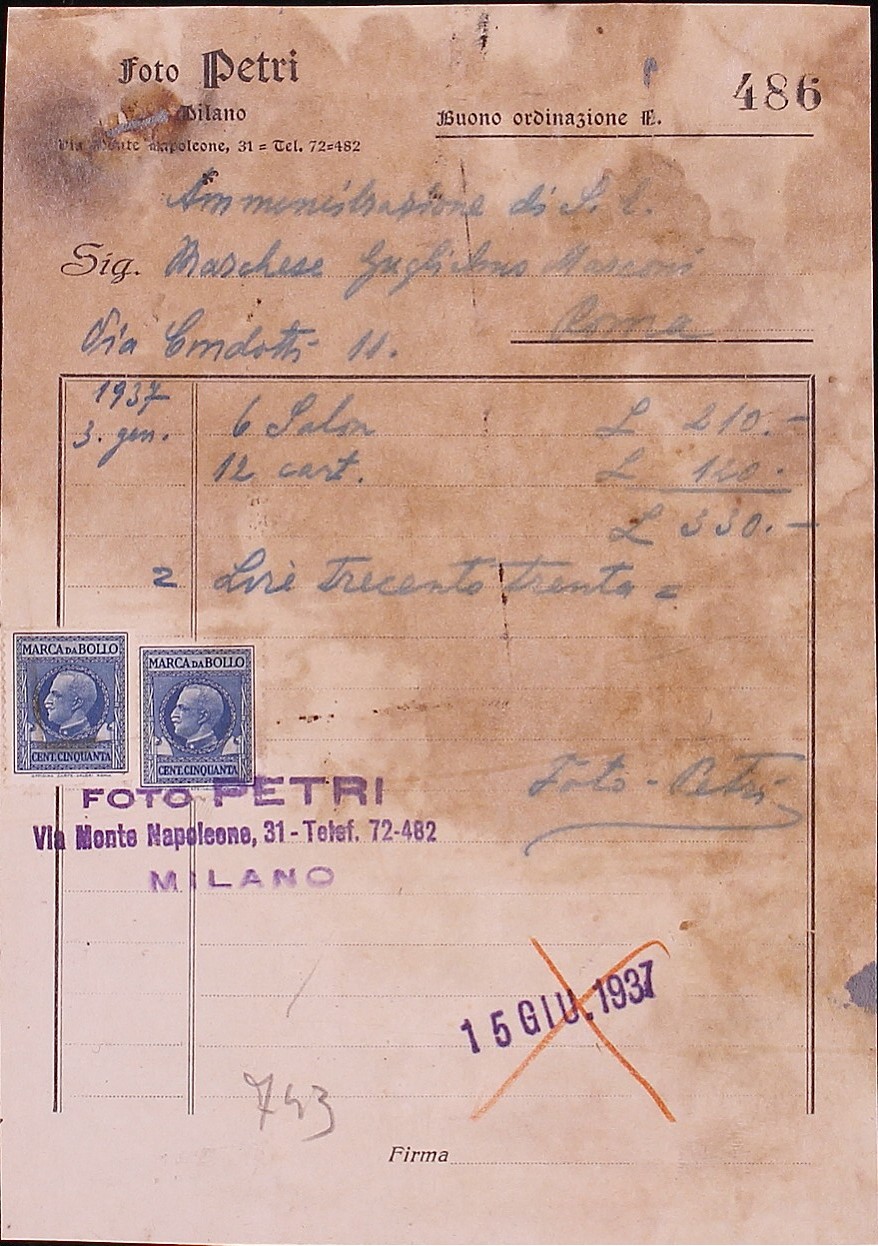 Foto Petri
Milano
Via Monte Napoleone, 31 = Tel. 72=482
Buono ordinazione E.
486
Amministrazione di S. E.
Sig. Marchese Guglielmo Marconi
Roma
Via Condotti 11.
1937
3. gen. 6 Salon L 210.-
12 cart. L 120.
L 330.-
= Lire Trecento trenta =
MARCA DA BOLLO
CENT. CINQUANTA
MARCA DA BOLLO
CENT. CINQUANTA
Foto - Petri
FOTO PETRI
Via Monte Napoleone, 31 - Telef. 72-482
MILANO
15 GIU. 1937
743
Firma